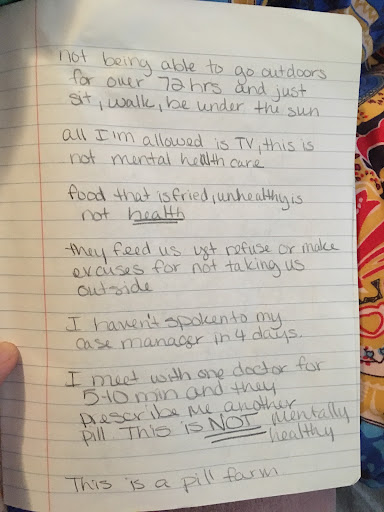 not being able to go outdoors
for over 72 hrs and just
sit, walk, be under the sun
all I'm allowed is TV, this is
not mental health care
food that is fried, unhealthy is
not health
they feed us yet refuse or make
excuses for not taking us
outside
I haven't spoken to my
case manager in 4 days.
I meet with one doctor for
5-10 min and they
prescribe me another
pill. This is NOT mentally
healthy
This is a pill farm